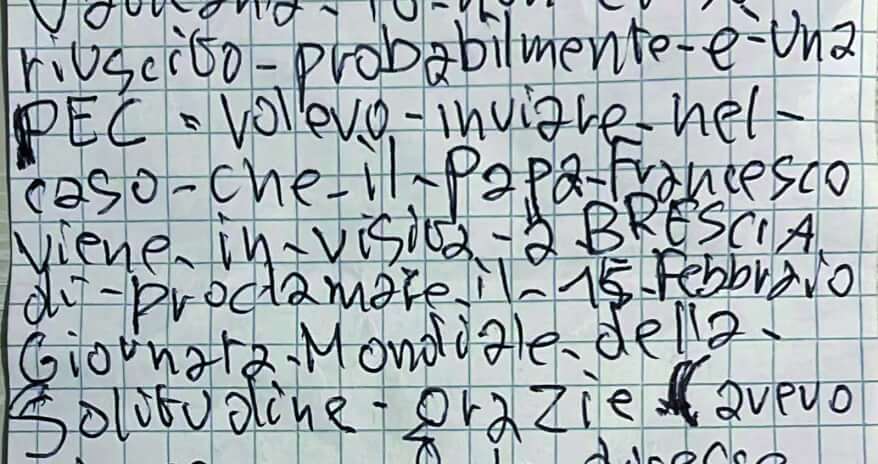 riuscito-probabilmente-è-una
PEC = volevo-inviare-nel-
caso-che-il-Papa-Francesco
viene-in-visita-a BRESCIA
di-proclamare-il-15-Febbraio
Giornata-Mondiale-della-
Solitudine-grazie avevo